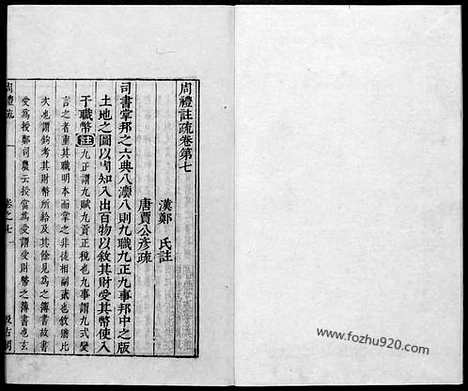 周禮註疏卷第七
漢鄭　氏註
唐賈公彥疏
司書掌邦之六典八灋八則九職九正九事邦中之版
土地之圖以周知入出百物以敘其財受其幣使入
于職幣註九正謂九賦九貢正稅也九事謂九式變
言之者重其職明本而掌之非徒相副貳也敘猶比
次也謂鉤考其財幣所給及其餘見為之簿書故書
受為授鄭司農云授當為受謂受財幣之簿書也玄
周禮疏
卷之七
汲古閣
www.fozhu920.com